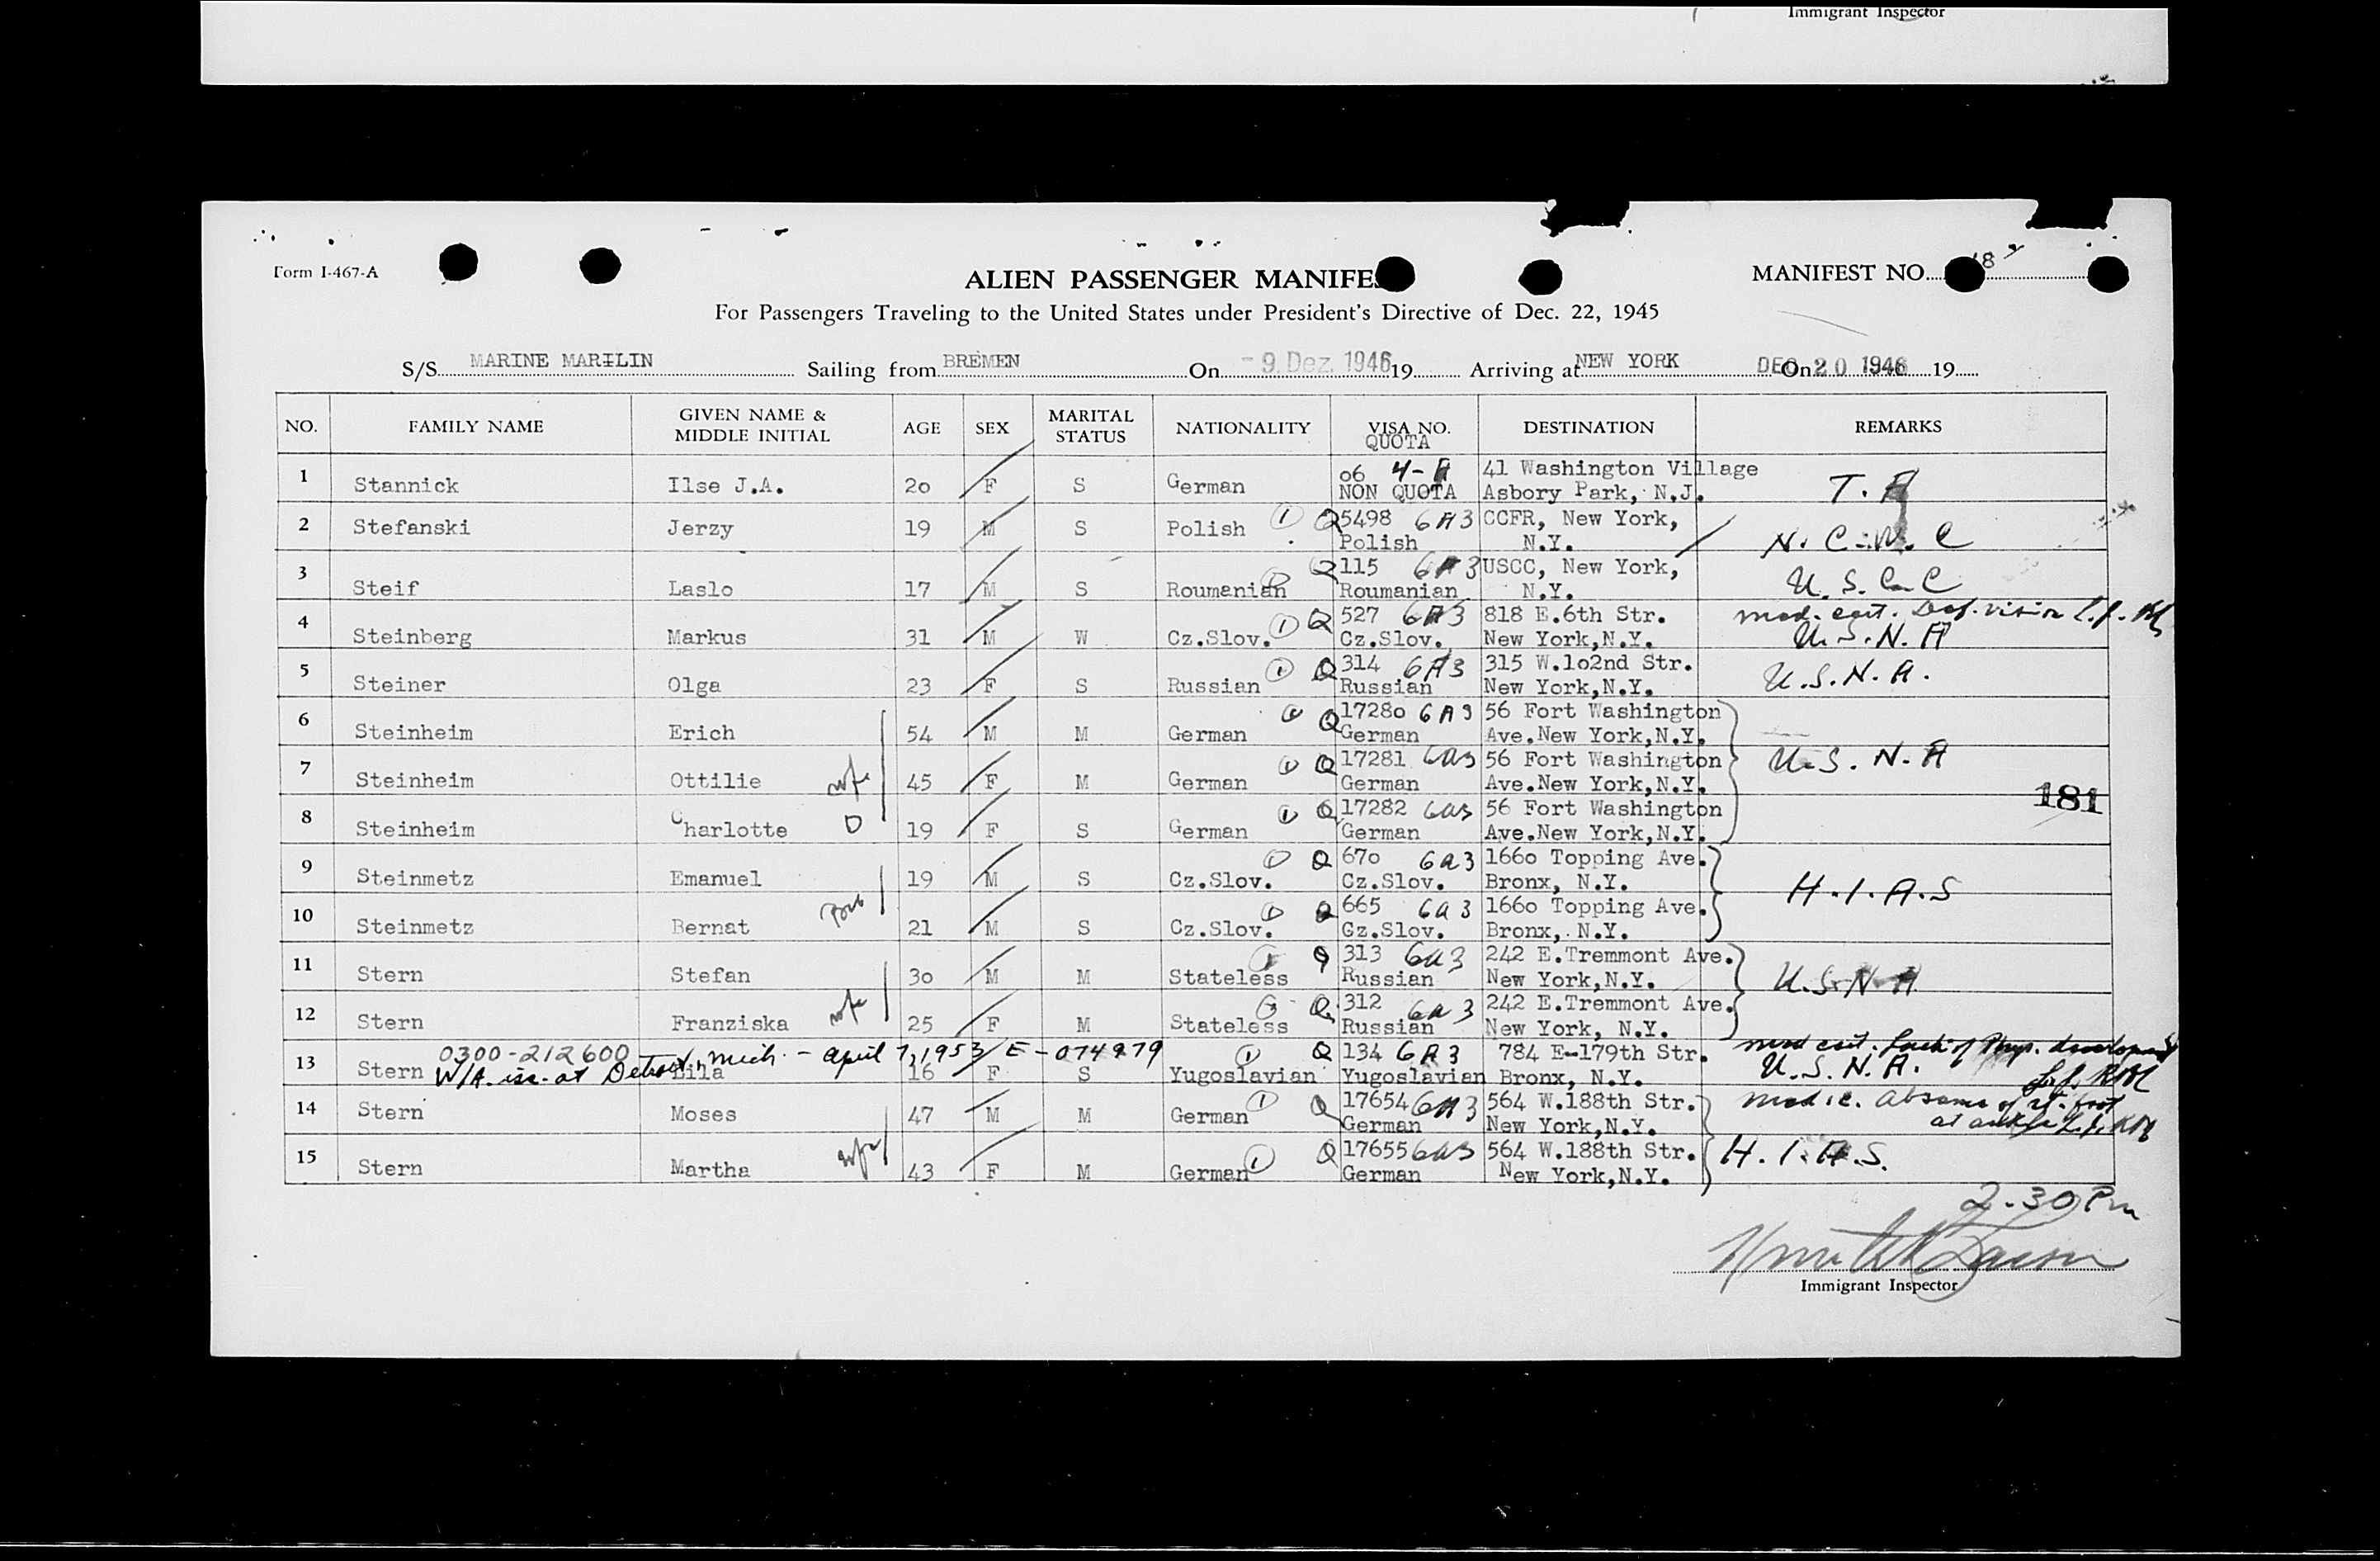 Immigrant Inspector
Form I-467-A
ALIEN PASSENGER MANIFES
MANIFEST NO.
For Passengers Traveling to the United States under President's Directive of Dec. 22, 1945
S/S MARINE MARILIN Sailing from BREMEN On - 9. Dez. 1946 19 Arriving at NEW YORK On DEC 20 1946 19
NO. FAMILY NAME GIVEN NAME & MIDDLE INITIAL AGE SEX MARITAL STATUS NATIONALITY VISA NO. QUOTA DESTINATION REMARKS
1 Stannick Ilse J.A. 20 F S German 06 4-A 41 Washington Village T.A
NON QUOTA Asbory Park, N.J.
2 Stefanski Jerzy 19 M S Polish 1 Q 5498 6A3 CCFR, New York, N.C.W.C
Polish N.Y.
3 Steif Laslo 17 M S Roumanian 1 Q 115 6A3 USCC, New York, U.S.C.C
Roumanian N.Y.
4 Steinberg Markus 31 M W Cz.Slov. 1 Q 527 6A3 818 E.6th Str. med. cert. Def. vision
Cz.Slov. New York,N.Y. U.S.N.A
5 Steiner Olga 23 F S Russian 1 Q 314 6A3 315 W.1o2nd Str. U.S.N.A.
Russian New York,N.Y.
6 Steinheim Erich 54 M M German 1 Q 17280 6A3 56 Fort Washington
German Ave.New York,N.Y.
7 Steinheim Ottilie wife 45 F M German 1 Q 17281 6A3 56 Fort Washington U.S.N.A
German Ave.New York,N.Y.
181
8 Steinheim Charlotte D 19 F S German 1 Q 17282 6A3 56 Fort Washington
German Ave.New York,N.Y.
9 Steinmetz Emanuel 19 M S Cz.Slov. 1 Q 670 6A3 1660 Topping Ave.
Cz.Slov. Bronx, N.Y. H.I.A.S
10 Steinmetz Bernat Bro 21 M S Cz.Slov. 1 Q 665 6A3 1660 Topping Ave.
Cz.Slov. Bronx, N.Y.
11 Stern Stefan 30 M M Stateless Q 313 6A3 242 E.Tremmont Ave.
Russian New York,N.Y. U.S.N.A
12 Stern Franziska wife 25 F M Stateless Q 312 6A3 242 E.Tremmont Ave.
Russian New York, N.Y.
0300-212600
W/A iss. at Detroit, Mich. - April 7, 1953 E-074979
13 Stern Lila 16 F S Yugoslavian 1 Q 134 6A3 784 E-179th Str. med cert. Lack of Phys. development
Yugoslavian Bronx, N.Y. U.S.N.A.
14 Stern Moses 47 M M German 1 Q 17654 6A3 564 W.188th Str. med. c. absence of rt. foot
German New York,N.Y. at ankle
15 Stern Martha wife 43 F M German 1 Q 17655 6A3 564 W.188th Str. H.I.A.S.
German New York,N.Y.
2-30 Pm
Immigrant Inspector